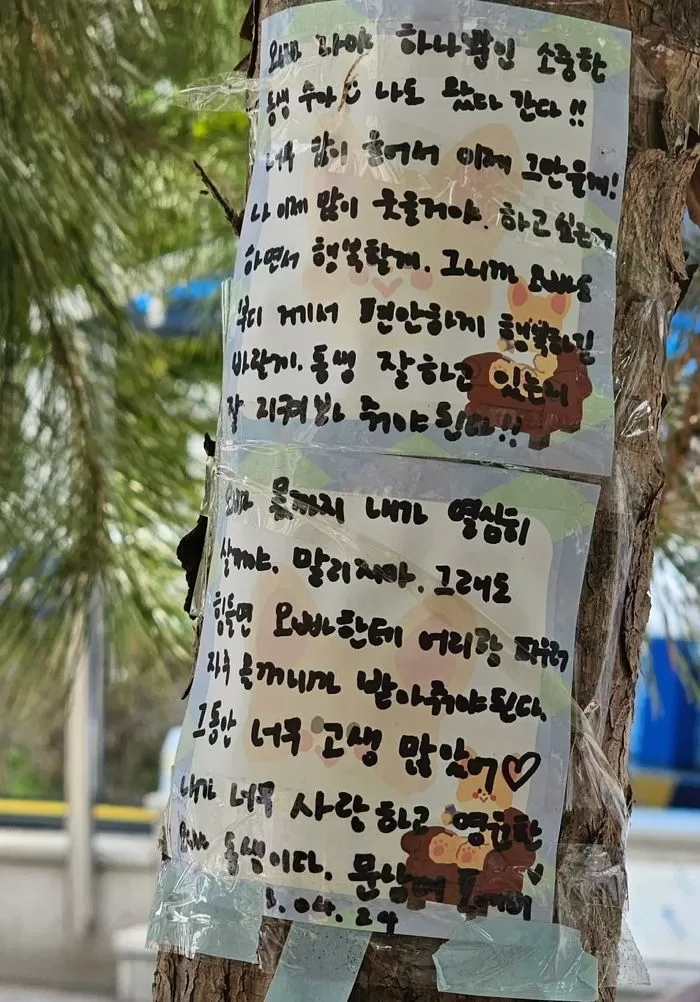 오빠 하나뿐인 소중한
동생 수아 나도 왔다 간다!!
너무 많이 울어서 이제 그만울게!
나 이제 많이 웃을거야. 하고싶은거
하면서 행복할게. 그니까 오빠도
부디 거기서 편안하게 행복하길
바랄게. 동생 잘하고 있는지
잘 지켜봐 줘야 된다!!
오빠 몫까지 내가 열심히
살거야. 말리지마. 그래도
힘들면 오빠한테 어리광 피우러
자주 올꺼니까 받아줘야된다.
그동안 너무 고생 많았어♡
내가 너무 사랑하고 영원한
오빠 동생이다.
04.24